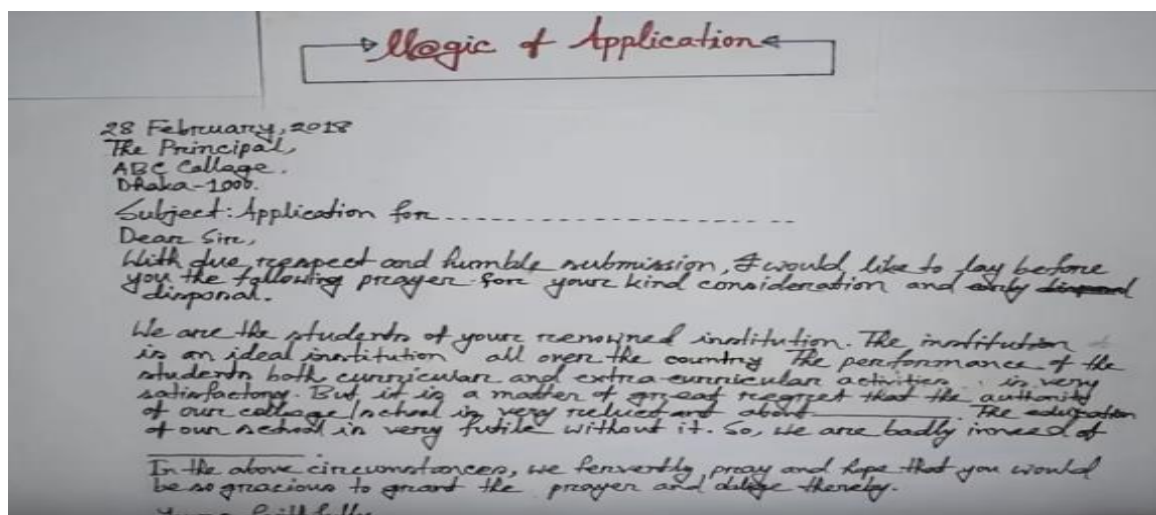 Magic of Application
28 February, 2018
The Principal,
ABC Callage.
Dhaka-1000.
Subject: Application for
Dear Sir,
With due respect and humble submission, I would like to lay before
you the following prayer for your kind consideration and early
disposal.
We are the students of your renowned institution. The institution
is an ideal institution all over the country The performance of the
students both curricular and extra-curricular activities is very
satisfactory. But, it is a matter of great regret that the authority
of our college/school is very reluctant about ________ The education
of our school is very futile without it. So, we are badly in need of
In the above circumstances, we fervently pray and hope that you would
be so gracious to grant the prayer and oblige thereby.